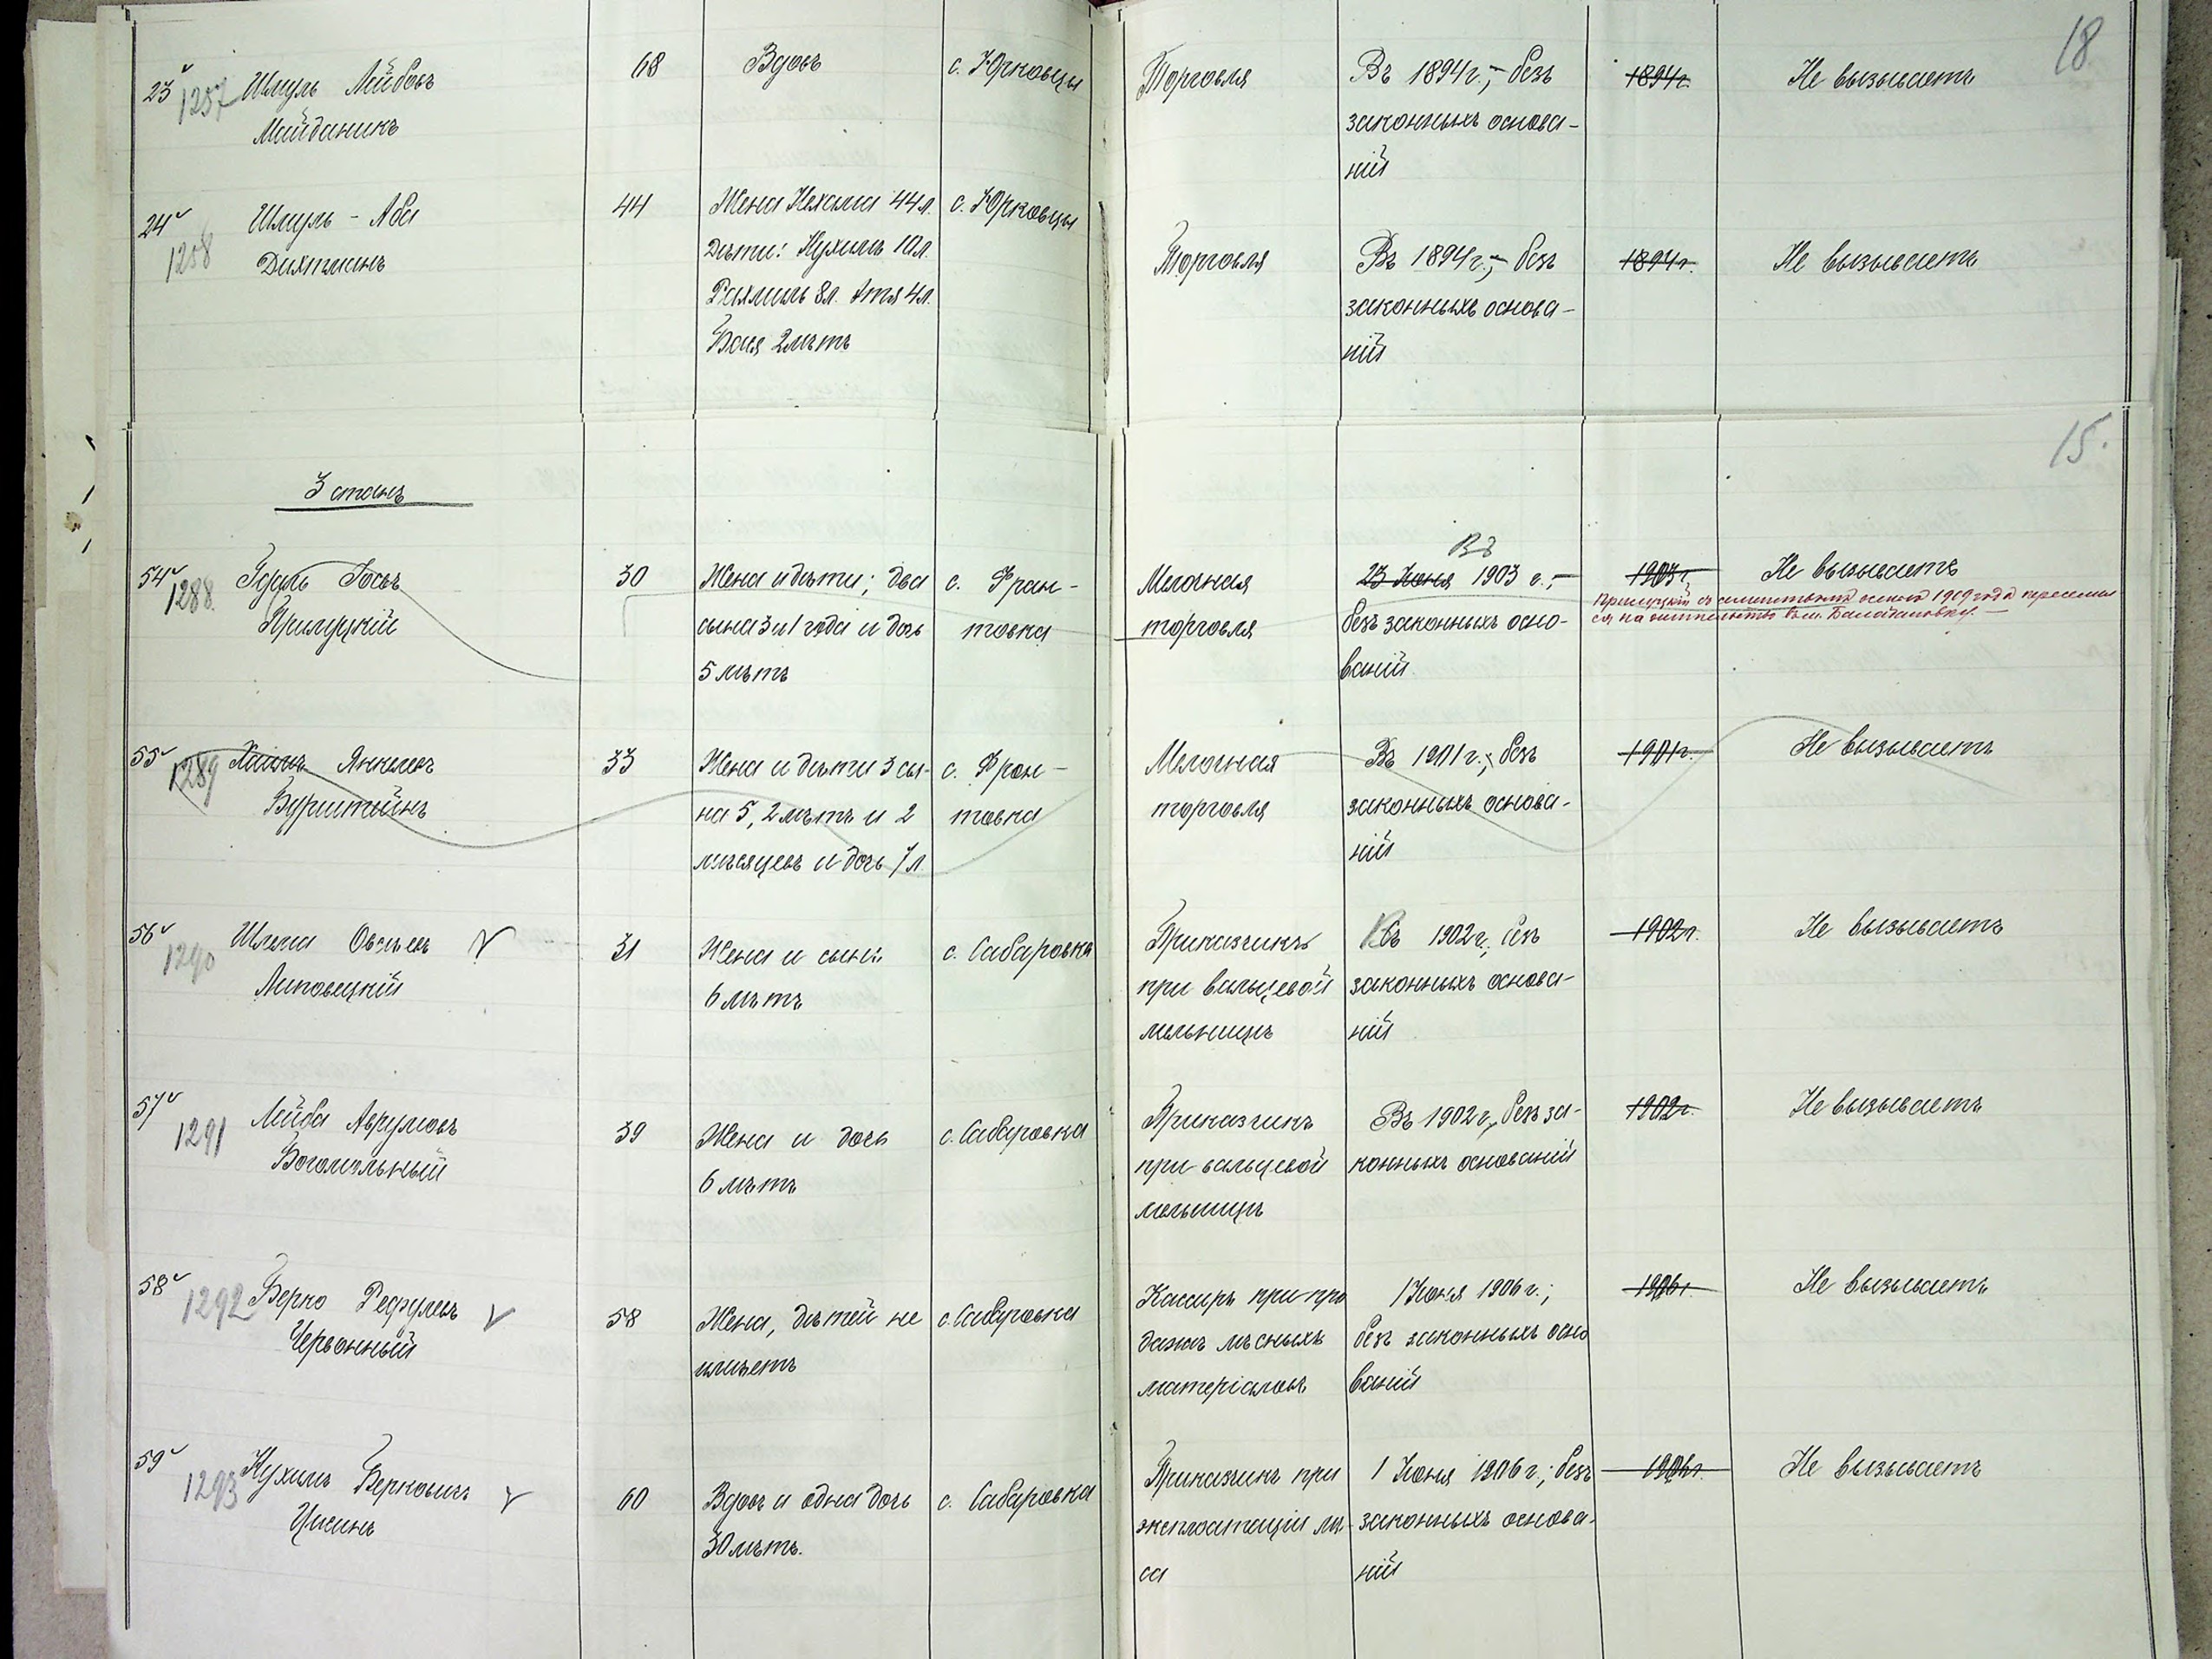 18
23 1257 Шмуль Лейбовъ
Майданикъ
68
Вдовъ
с. Юрковцы
Торговля
Въ 1894 г., – безъ
законныхъ основа-
ній
1894 г.
Не вызываетъ
24 1258 Шмуль - Аба
Дихтманъ
44
Жена Нехама 44 л.
Дѣти: Нухимъ 10 л.
Рахмиль 8 л. Этя 4 л.
Бася 2 лѣтъ
с. Юрковцы
Торговля
Въ 1894 г., – безъ
законныхъ основа-
ній
1894 г.
Не вызываетъ
15.
3 станъ
54 1288. Гдаль Іосъ
Прилуцкій
30
Жена и дѣти; два
сына 3 и 1 года и дочь
5 лѣтъ
с. Фран-
товка
Мелочная
торговля
Въ
23 Іюня 1903 г. –
безъ законныхъ осно-
ваній
1903 г.
Не вызываетъ
Прилуцкій съ семействомъ осенью 1909 года переселил
ся на жительство въ м. Балабановку. –
55 1289 Хаимъ Янкелевъ
Бурштейнъ
33
Жена и дѣти 3 сы-
на 5, 2 лѣтъ и 2
мѣсяцевъ и дочь 7 л.
с. Фран-
товка
Мелочная
торговля
Въ 1901 г.; безъ
законныхъ основа-
ній
1901 г.
Не вызываетъ
56 1290 Шлема
Липовецкій
31
Жена и сынъ
6 лѣтъ
с. Сабаровка
Приказчикъ
при вальцевой
мельницѣ
Въ 1902 г.; безъ
законныхъ основа-
ній
1902 г.
Не вызываетъ
57 1291 Лейба Аврумовъ
Богомольный
39
Жена и дочь
6 лѣтъ
с. Сабаровка
Приказчикъ
при вальцевой
мельницѣ
Въ 1902 г., безъ за-
конныхъ основаній
1902 г.
Не вызываетъ
58 1292 Берко
Червонный
58
Жена, дѣтей не
имѣетъ
с. Сабаровка
Кассиръ при про
дажѣ лѣсныхъ
матеріаловъ
1 Іюня 1906 г.;
безъ законныхъ осно
ваній
1906 г.
Не вызываетъ
59 1293 Нухимъ Берковичъ
Цисинъ
60
Вдовъ и одна дочь
30 лѣтъ.
с. Сабаровка
Приказчикъ при
эксплоатаціи лѣ-
са
1 Іюня 1906 г.; безъ
законныхъ основа-
ній
1906 г.
Не вызываетъ